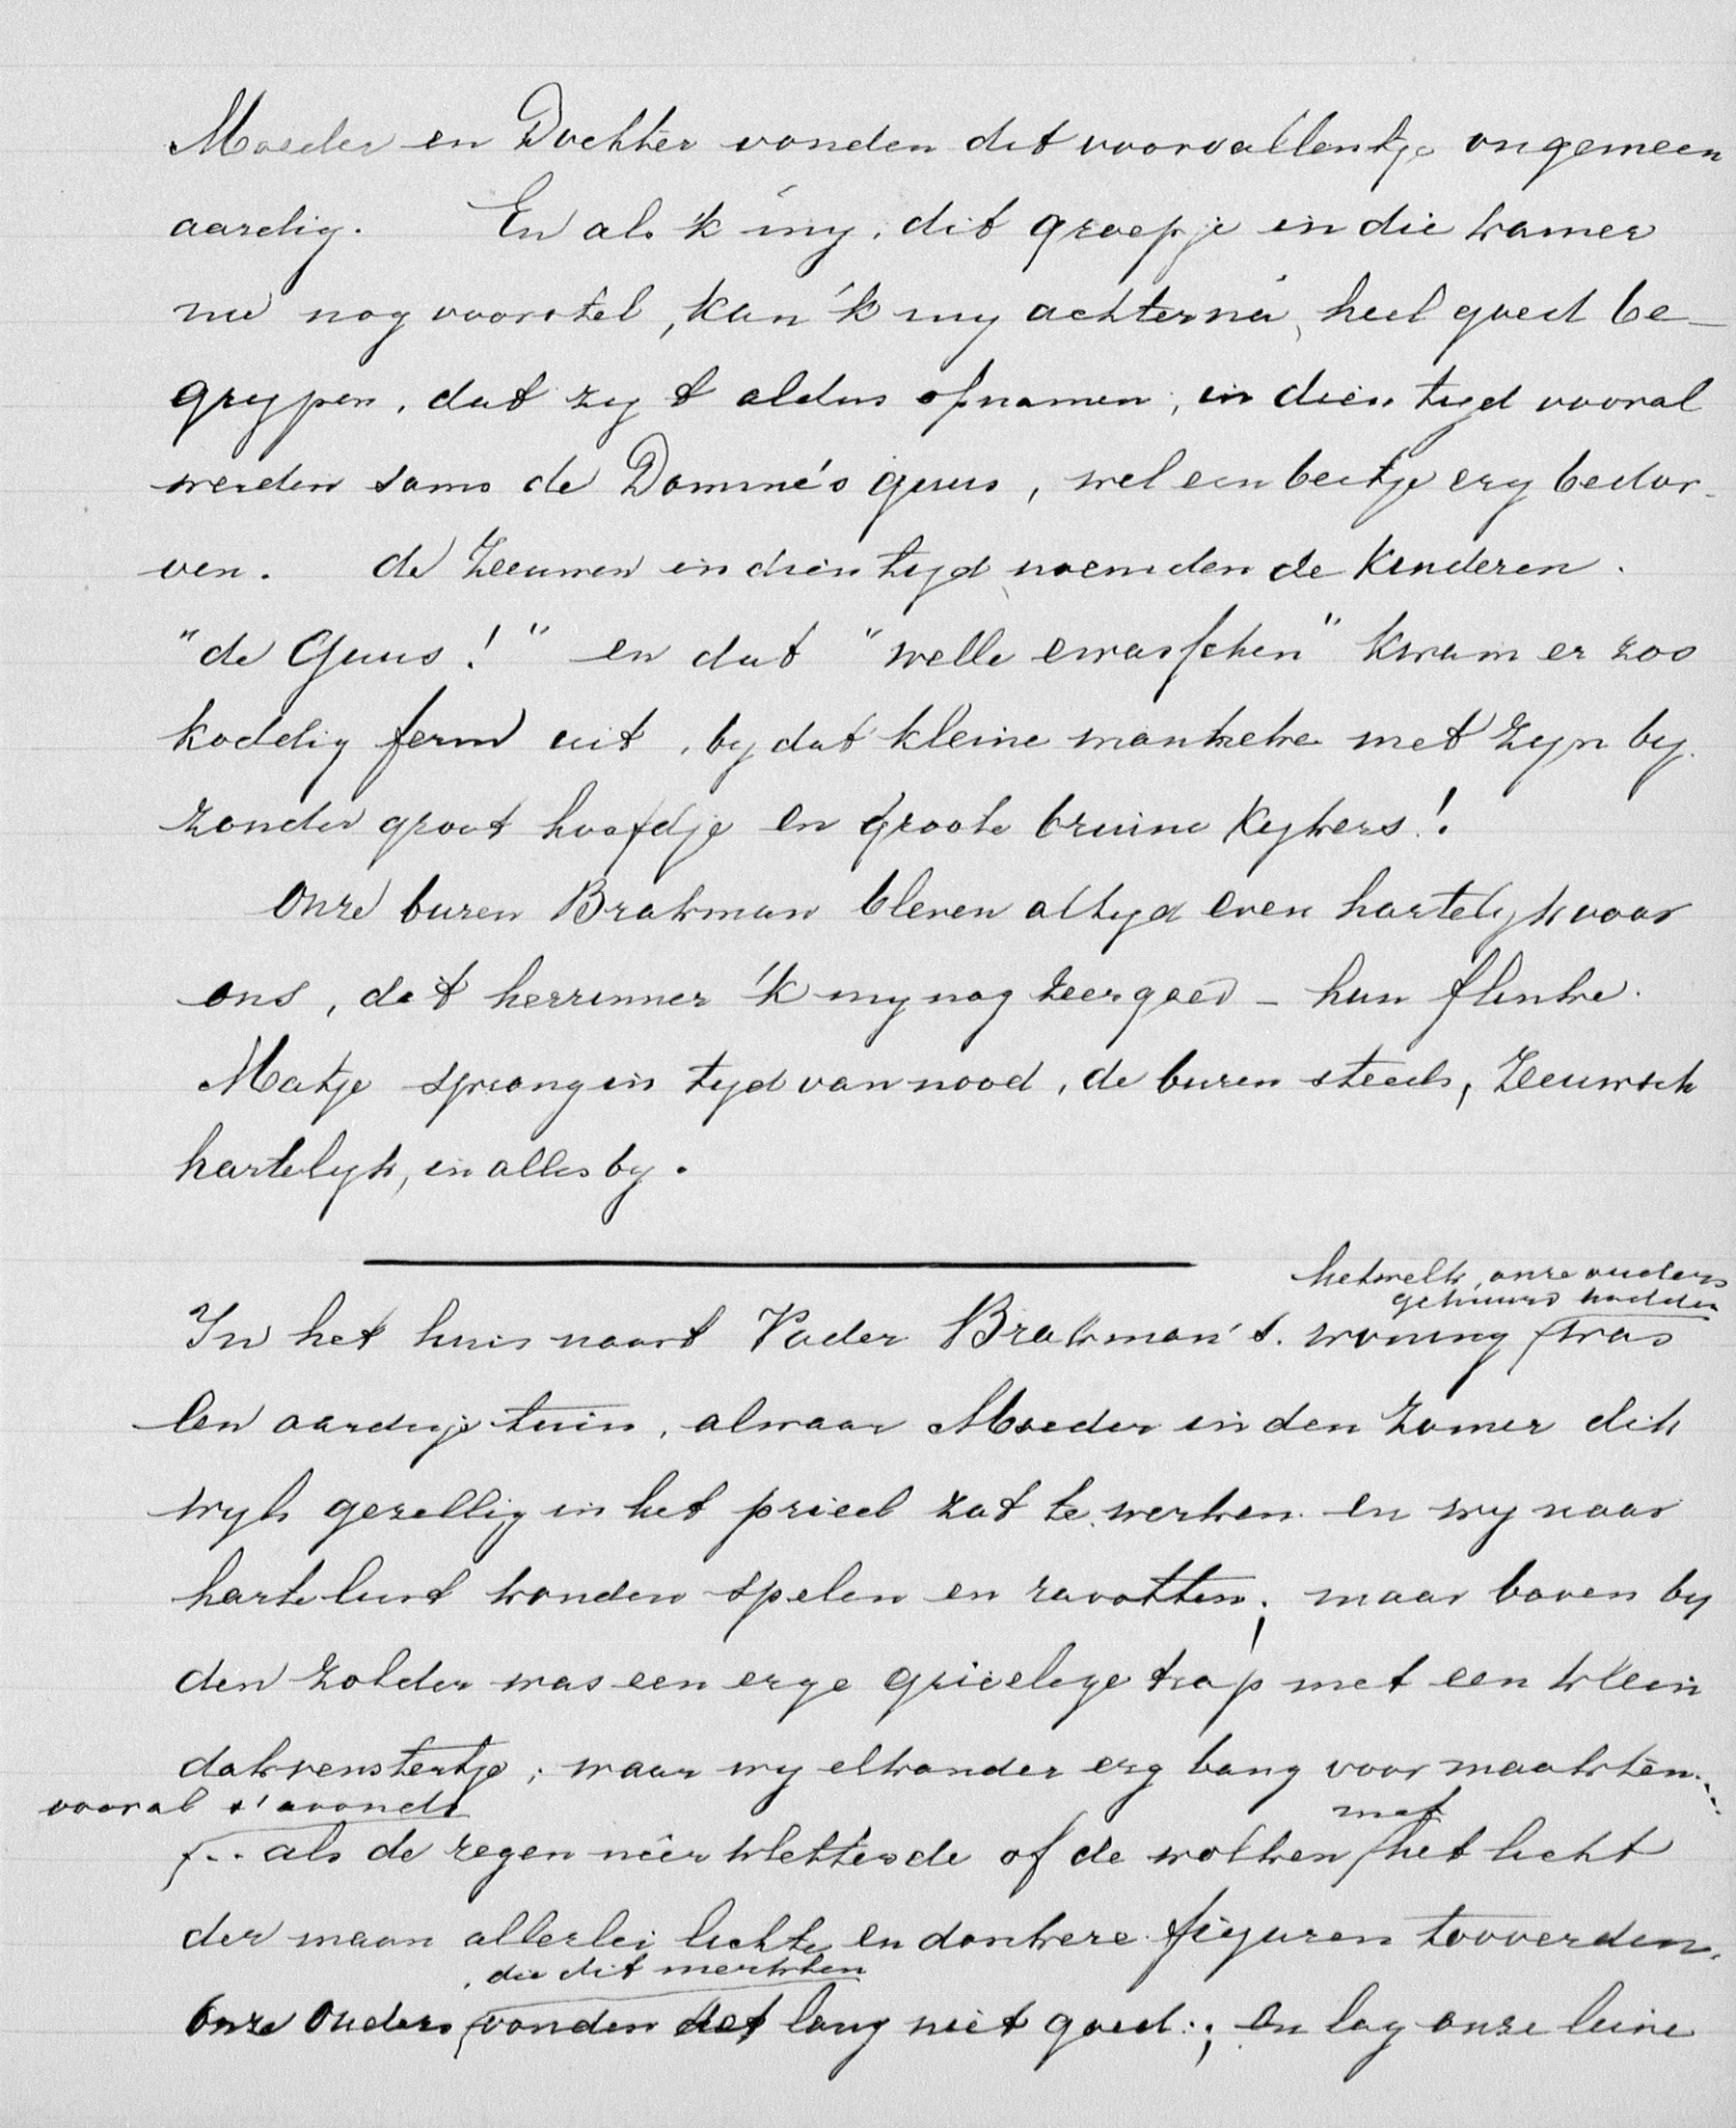 Moeder en Dochter vonden dit voorvallentje ongemeen
aardig. En als 'k my, dit groepje in die kamer
nu nog voorstel, kan 'k my achterna, heel goed be-
grypen, dat zy 't aldus opnamen, in dien tyd vooral
werden soms de Dominé's guus, wel een beetje erg bedor-
ven. de Zeeuwen in dien tyd noemden de Kinderen.
"de Guus!" en dat "welle ewasschen" kwam er zoo
koddig ferm uit, by dat kleine manneke met zyn by-
zonder groot hoofdje en groote bruine Kykers!.
Onze buren Brakman bleven altyd even hartelyk voor
ons, dat herrinner 'k my nog zeer goed – hun flinke.
Matje sprong in tyd van nood, de buren steeds, Zeeuwsch
hartelyk, in alles by.
hetwelk, onze ouders
gehuurd hadden
In het huis naast Vader Brakman's. woning was
een aardige tuin, alwaar Moeder in den Zomer dik
wyls gezellig in het prieel zat te werken en wy naar
hartelust konden spelen en ravotten; maar boven by
den Zolder was een erge grielige trap met een klein
dakvenstertje; waar wy elkander erg bang voor maakten...
vooral s'avonds
met
... als de regen néér kletterde of de wolken het licht
der maan allerlei lichte en donkere figuren tooverden.
, die dit merkten
Onze Ouders, vonden het lang niet goed.; en lag onze leine